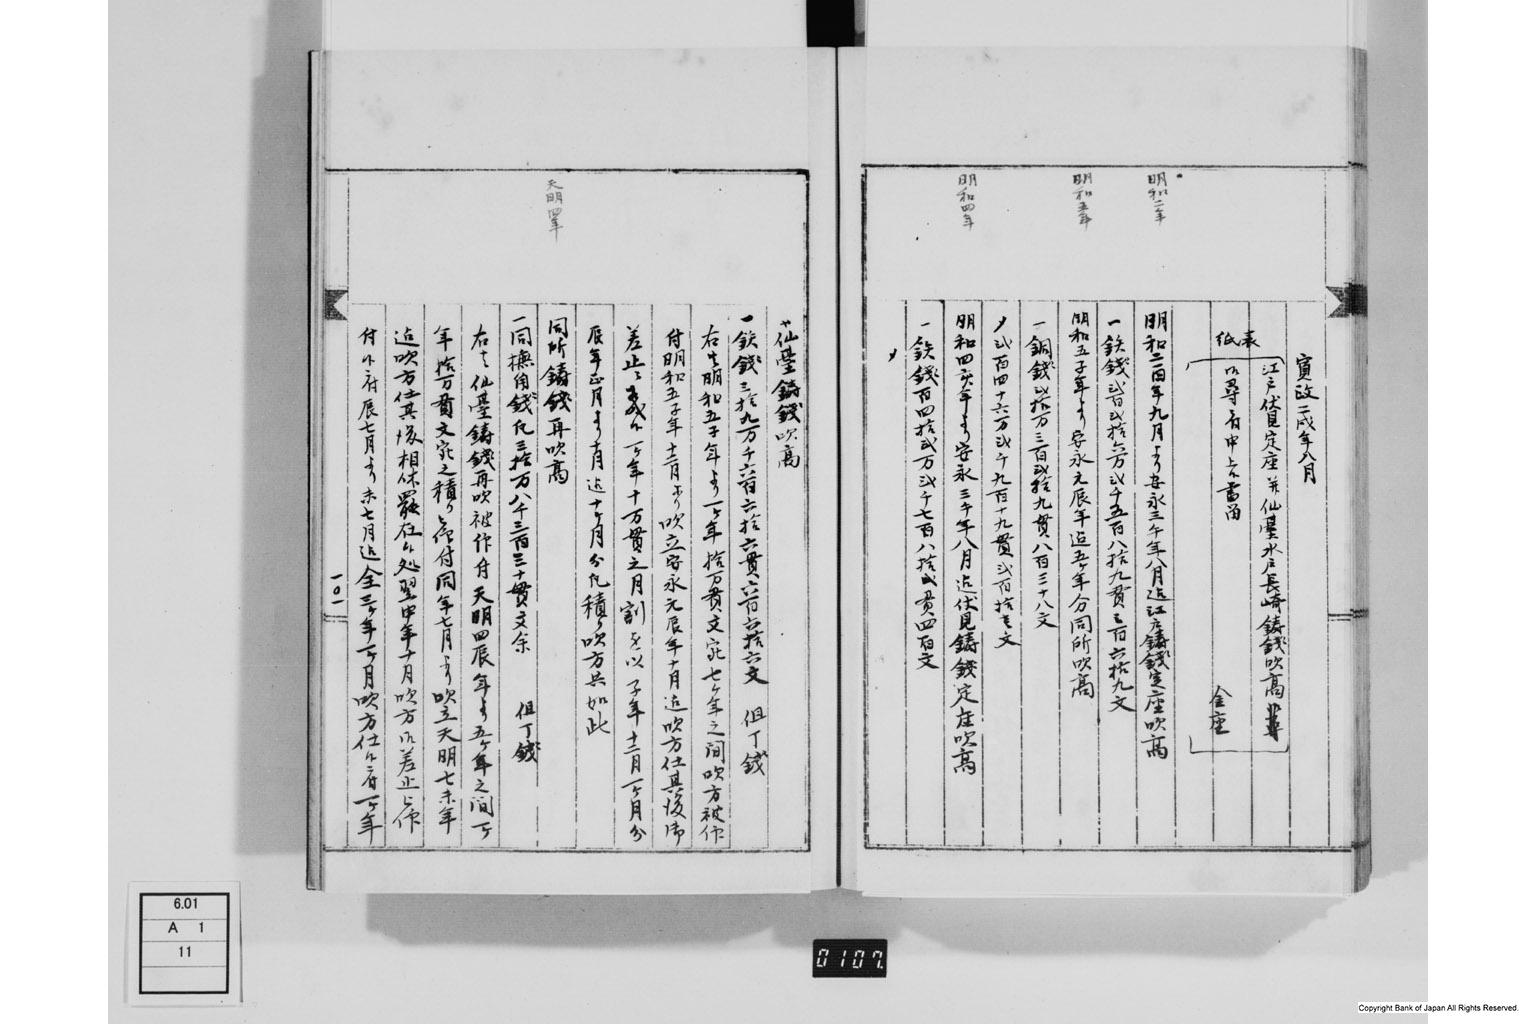 明和二年
明和五年
明和四年
寛政二戌年八月
表紙
江戸伏見定座并仙臺水戸長崎鋳銭吹高
御尋ニ付申上候書留
金座
明和二酉年九月より安永三午年八月迄江戸鋳銭定座吹高
一鉄銭弐百弐拾六万弐千五百八拾九貫三百六拾九文
明和五子年より安永元辰年迄五ヶ年分同所吹高
一銅銭弐拾万三百弐拾九貫八百三十八文
〆弐百四十六万弐千九百十九貫弐百拾七文
明和四亥年より安永三午年八月迄伏見鋳銭定座吹高
一鉄銭百四拾弐万弐千七百八拾弐貫四百文
〆
天明四年
仙臺鋳銭吹高
一鉄銭三拾九万千六百六拾六貫六百六拾六文 但丁銭
右者明和五子年より一ヶ年拾万貫文宛七ヶ年之間吹方被仰
付明和五子年十二月より吹立安永元辰年十月迄吹方仕其後御
差止之義ニ付一ヶ年十万貫之月割を以子年十二月一ヶ月分
辰年正月より十月迄十ヶ月分凡積り吹方共如此
同所鋳銭再吹高
一同撫角銭凡三拾万八千三百三十貫文余 但丁銭
右者仙臺鋳銭再吹被仰付天明四辰年より五ヶ年之間一ヶ
年拾万貫文宛之積り被仰付同年七月より吹立天明七未年
迄吹方仕其後相休罷在候処翌申年十月吹方御差止被仰
付候ニ付辰七月より未七月迄全三ヶ年一ヶ月吹方仕候ニ付一ヶ年
一〇一
6.01
A 1
11
0107
Copyright Bank of Japan All Rights Reserved.